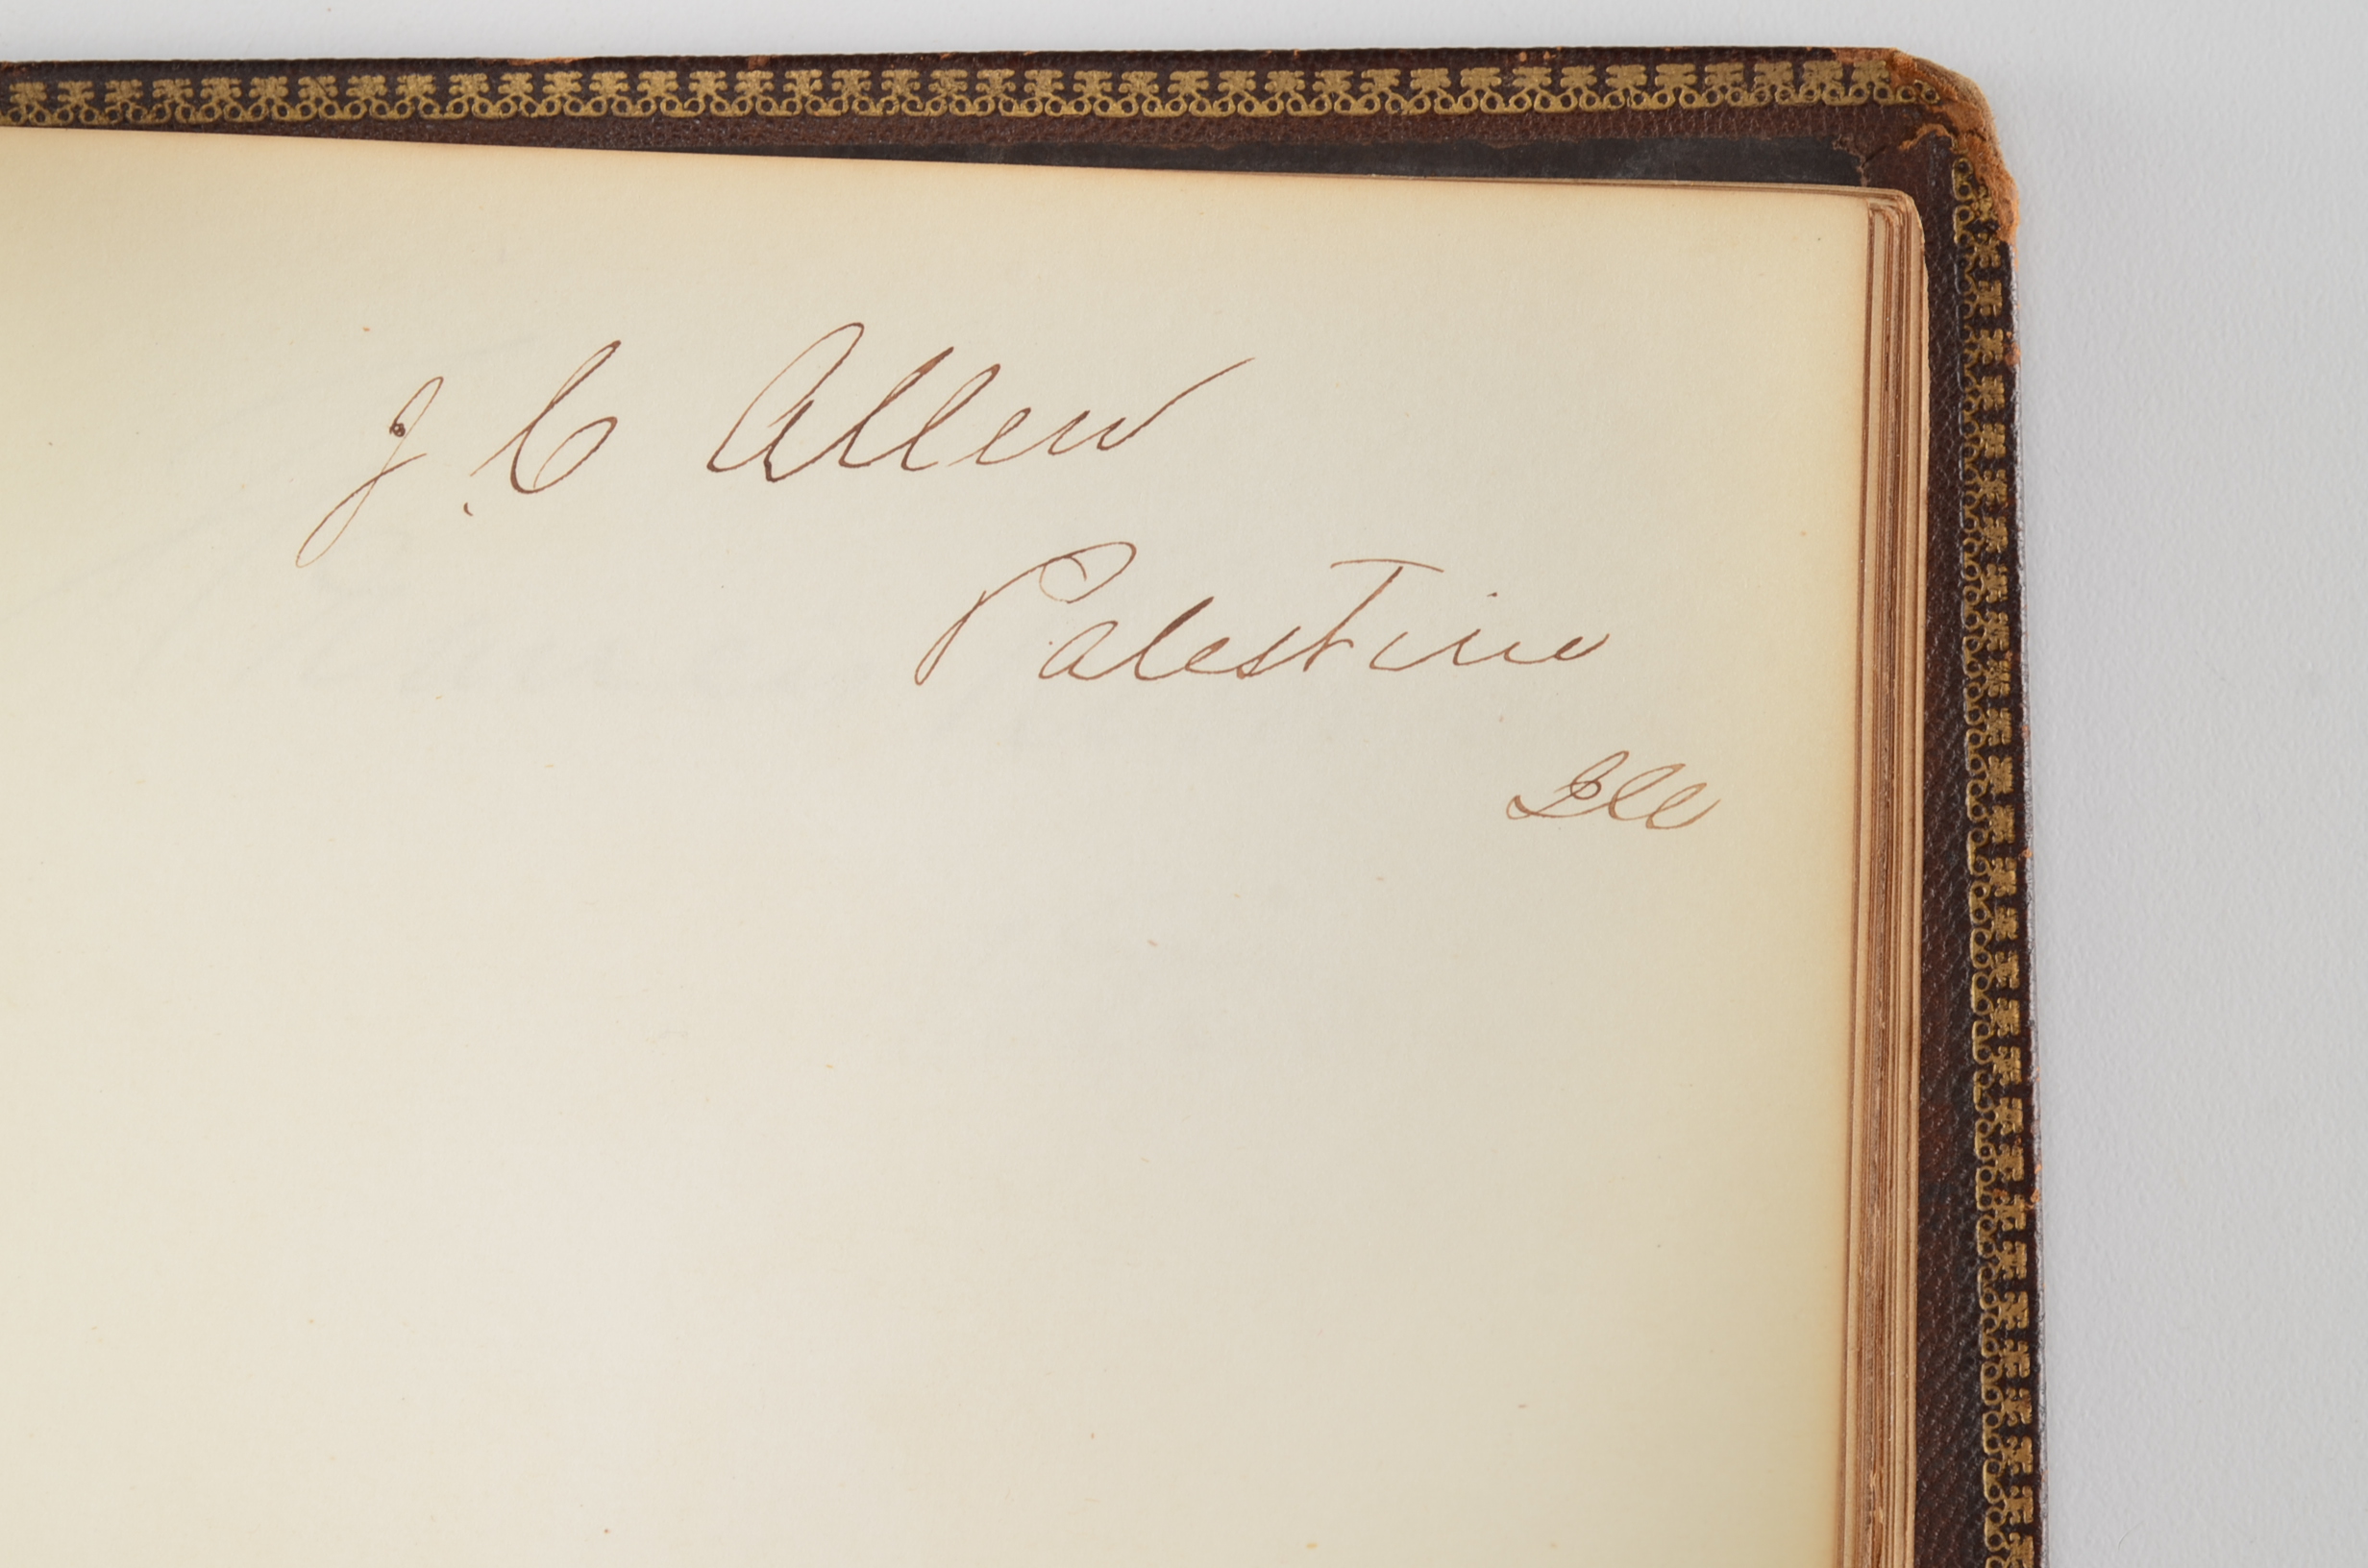 J. C Allen
Palestine
Ill